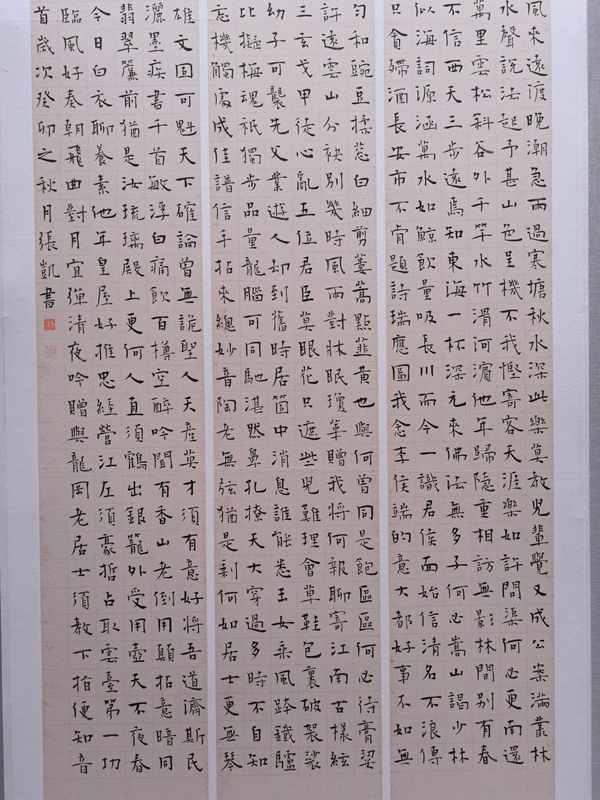 風來遠渡晚潮急雨過寒塘秋水深此樂莫放兒輩覺又成公案滿叢林
水聲說法起予甚山色呈機不我慳寄客天涯樂如許問渠何必更南還
萬里雲松斜谷外千竿水竹渭河濱他年歸隱重相訪無影林間別有春
不信西天三步遠焉知東海一杯深元來佛法無多子何必嵩山謁少林
似海詞源涵萬水如鯨飲量吸長川而今一識君侯面始信清名不浪傳
只會殢酒長安市不肯題詩瑞應圖我念李侯端的意大都好事不如無
勻和豌豆揉蔥白細剪蔞蒿點韮黃也與何曾同是飽區區何必待膏粱
許遠雲山分袂別幾時風雨對牀眠瓊華贈我將何報聊寄江南古樣絃
三玄戈甲徒心亂五位君臣莫眼花只遮些兒難理會草鞋包裹破袈裟
幼子可襲先父業遊人却到舊時居箇中消息誰能悉玉女乘風跨鐵驢
比擬梅魂祇獨步品量龍腦可同馳湛然鼻孔撩天大穿過多時不自知
忘機觸處成佳譜信手拈來總妙音陶老無弦猶是剩何如居士更無琴
雄文固可魁天下確論曾無詭聖人天産英才須有意好將吾道濟斯民
灑墨疾書千首敏浮白痛飲百樽空醉吟聞有香山老倒用顛拈意暗同
翡翠簾前猶是汝琉璃殿上更何人直須鶴出銀籠外受用壺天不夜春
今日白衣聊養素他年皇屋好推忠經營江左須豪哲占取雲臺第一功
臨風好奏朝飛曲對月宜彈清夜吟贈與龍岡老居士須教下指便知音
首歲次癸卯之秋月張凱書